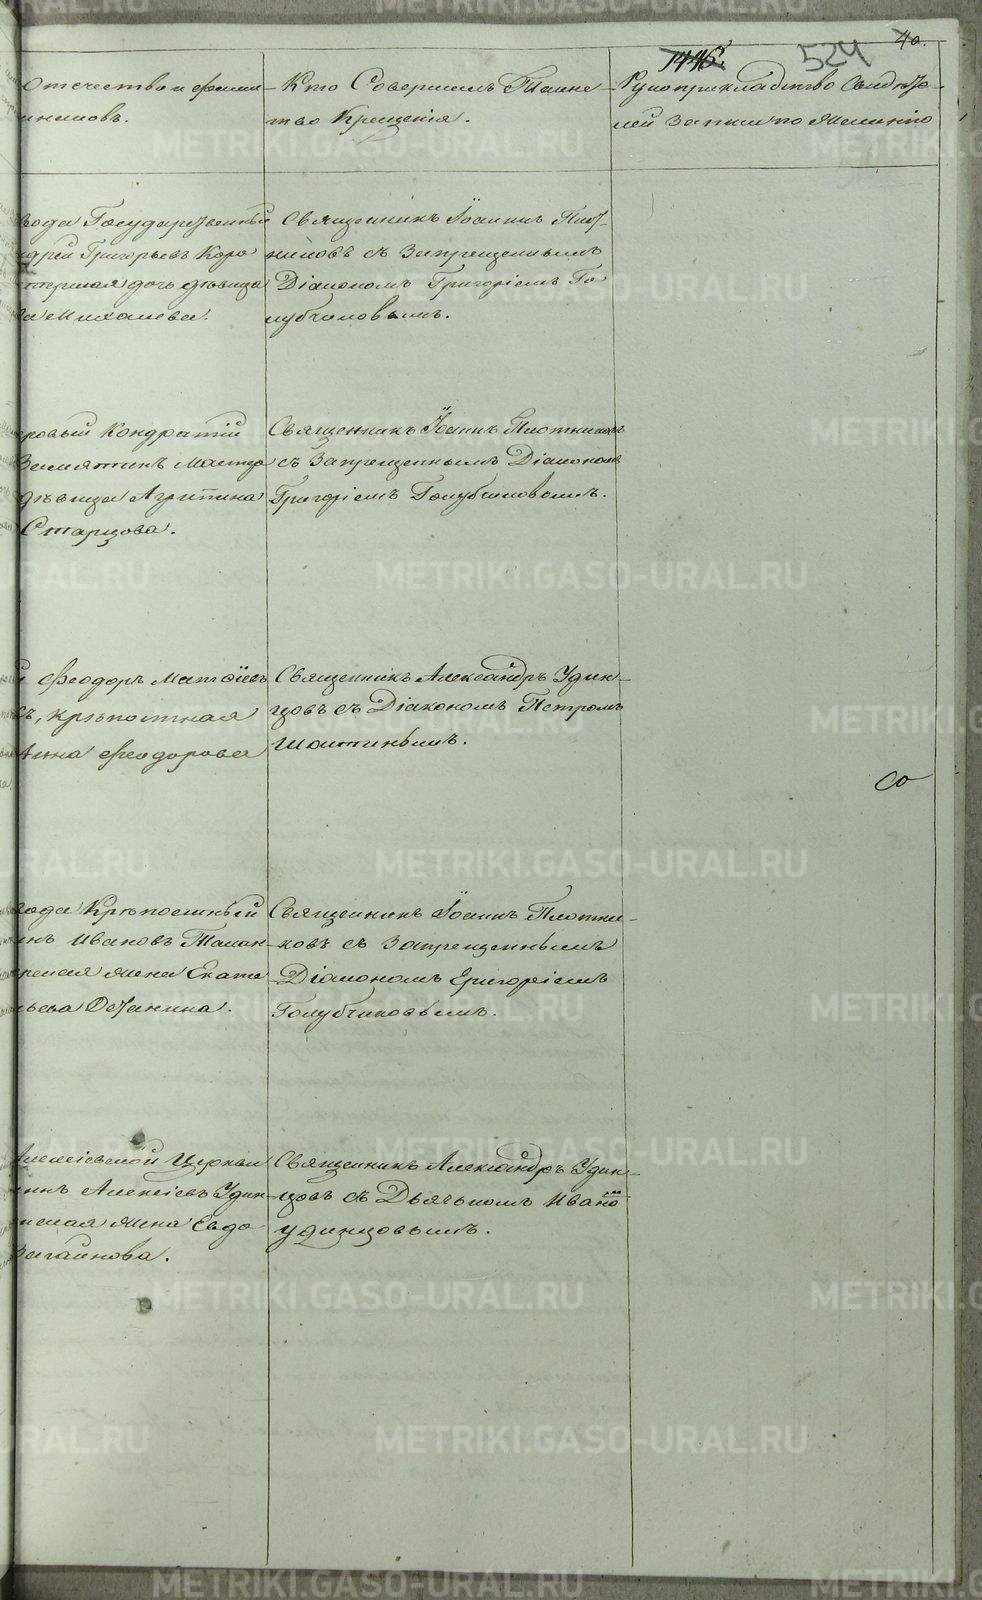 40.
1446.
524
Отечество и фами-
Кто Совершалъ Таинс
Рукоприкладство Свидѣте-
тво Крещенія.
лей Записи по Желанію
вода Государственный
Григорьевъ Каро
дочь дѣвица
Михалева.
Священникъ Іоаннъ Плот-
никовъ съ Запрещеннымъ
Діакономъ Григоріемъ Го
лубчиковымъ.
Кондратій
Замятинъ Мастер
дѣвица Агрипина
Старцова.
Священникъ Іоаннъ Плотниковъ
съ Запрещеннымъ Діакономъ
Григоріемъ Голубчиковымъ.
Феодоръ Матвіевъ
крѣпостная
Анна Феодорова
Священникъ Александръ Удин-
цовъ съ Діакономъ Петромъ
Шаитинымъ.
вода Крѣпостный
Ивановъ Талан-
жена Екате
Деѣанина.
Священникъ Іоаннъ Плотни-
ковъ съ Запрещеннымъ
Діакономъ Григоріемъ
Голубчиковымъ.
Церкви
Алексіевъ Удин-
жена Евдо
Загайнова.
Священникъ Александръ Удин-
цовъ съ Дьячкомъ Иваномъ
Удинцовымъ.
METRIKI.GASO-URAL.RU